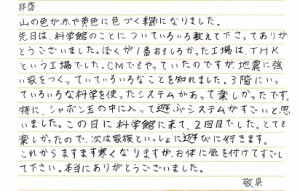 拝啓
山の色が赤や黄色に色づく季節になりました。
先日は、科学館のことについていろいろ教えて下さってありがとうございました。ぼくが1番おもしろかった工場は、THK
という工場でした。CMでもやっていたのですが、地震に強
い家をつくっていていろいろなことを知れました。3階にいっ
ていろいろな科学を使ったシステムがあって楽しかったです。
特に、シャボン玉の中に入って遊ぶシステムがすごいと思
いました。この日に科学館に来て、2回目でした。とても
楽しかったので、次は家族といっしょに遊びに行きます。
これからますます寒くなりますが、お体に気を付けてすごし
て下さい。本当にありがとうございました。
敬具